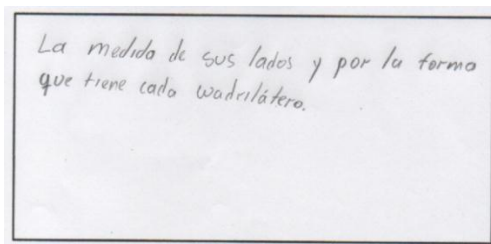 La medida de sus lados y por la forma
que tiene cada cuadrilátero.